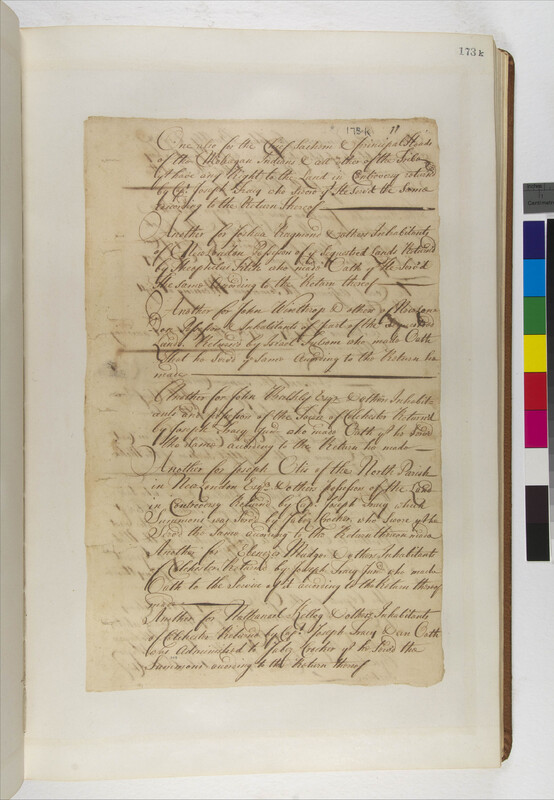 173k
173-k 11
One also for the Chief Sachem & principal Heads
of the Mohegan Indians & all other of the Tribe
yt have any Right to the Land in Controversy returnd
by Capt Joseph Tracy who swore yt He servd the same
according to the Return thereof
Another for Joshua Raymond & others Inhabitants
of New London Possessors of ye Sequestred Lands Returnd
by Theophilus who made Oath yt He Servd
the Same According to the Return thereof
Another for John Winthrop & others of New Lon
don & Inhabitants of part of the
Lands. Returned by Israel who made Oath
that he Servd ye Same According to the Return
made
Another for John Bulkley Esqr & others Inhabit
ants and possessors of the Town of Colchester Returnd
by Joseph Tracy Junr who made Oath yt he Servd
the Same according to the Return made
Another for Joseph Otis of the North Parish
in New London Esqr & others possessors of the Land
in Controversy Returnd by Capt Joseph Tracy which
Summons was Servd by Jabez Crocker, who Swore yt he
Servd the Same according to the Return thereon made
Another for Ebenezer Mudge & others Inhabitants
of Colchester Returnd by Joseph Tracy Junr who made
Oath to the Service according to the Return thereof
made
Another for Nathaniel Kellog & others Inhabitants
of Colchester Returnd by Capt Joseph Tracy & an Oath
was Administred to Jabez Crocker yt he Servd the
Summons according to the Return thereof